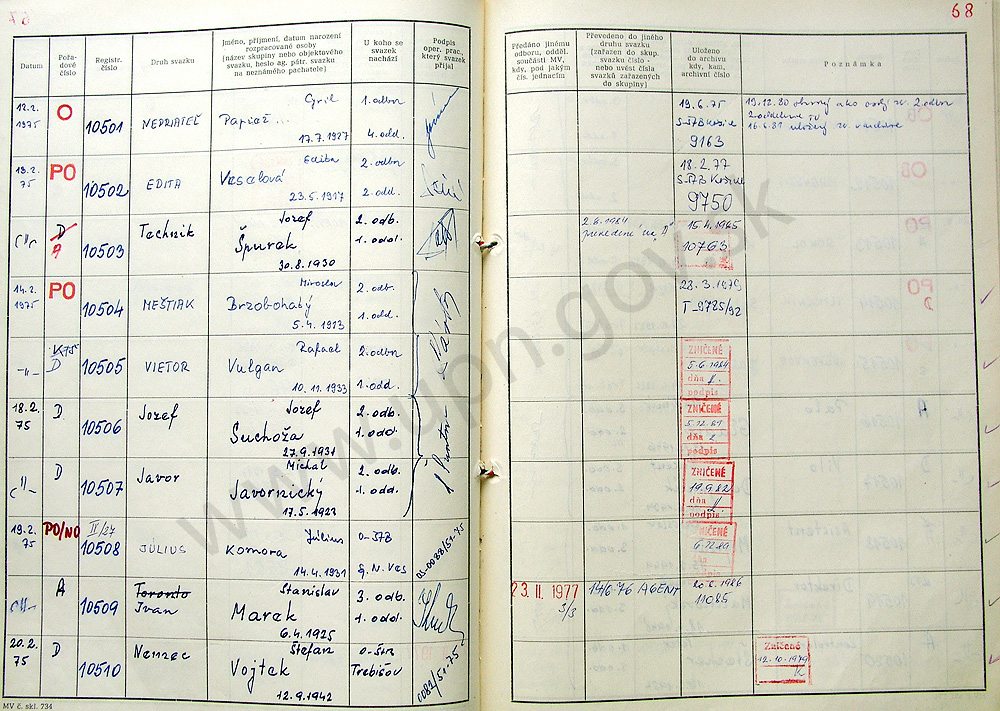 67
68
Datum
Pořa-
dové
číslo
Registr.
číslo
Druh svazku
Jméno, příjmení, datum narození
rozpracované osoby
(název skupiny nebo objektového
svazku, heslo ag. pátr. svazku
na neznámého pachatele)
U koho se
svazek
nachází
Podpis
oper. prac.,
který svazek
přijal
Předáno jinému
odboru, odděl.
součásti MV,
kdy, pod jakým
čís. jednacím
Převedeno do jiného
druhu svazku
(zařazen do skup.
svazku číslo -
nebo uvést čísla
svazků zařazených
do skupiny)
Uloženo
do archivu
kdy, kam,
archivní číslo
Poznámka
12.2.
1975
O
10501
NEPRIATEĽ
Cyril
Papiaž...
17.7.1927
1. odbor
4. odd.
19.6.75
S-ŠTB Košice
9163
19.12.80
2. odbor
16.6.81
13.2.
75
PO
10502
EDITA
Edita
Veselová
23.5.1917
2. odbor
2. odd.
18.2.77
S-ŠTB Košice
9750
-"-
D
A
10503
Technik
Jozef
Špurek
30.8.1930
2. odb.
1. odd.
2.6.1984
prevedené na "D"
15.4.1985
10763
14.2.
1975
PO
10504
MEŠTIAK
Miroslav
Brzobohatý
5.4.1923
2. odb.
1. odd.
28.3.1979
T-9785/92
-"-
K75
D
10505
VIETOR
Rafael
Vulgan
10.11.1933
2. odbor
1. odd.
ZNIČENÉ
5.6.1984
dňa
podpis
18.2.
75
D
10506
Jozef
Jozef
Suchoža
27.9.1931
2. odb.
1. odd.
ZNIČENÉ
5.12.89
dňa
podpis
-"-
D
10507
Javor
Michal
Javornický
17.5.1923
2. odb.
1. odd.
ZNIČENÉ
19.9.82
dňa
podpis
19.2.
75
PO/NO
II/27
10508
JÚLIUS
Július
Komora
14.4.1931
O-ŠTB
S.N.Ves
OS-0088/ST-75
ZNIČENÉ
6.12.89
dňa
podpis
-"-
A
10509
Toronto
Ivan
Stanislav
Marek
6.4.1925
3. odb.
1. odd.
23.11.1977
S/S
14/6.76 AGENT
20.8.1986
11085
20.2.
75
D
10510
Nemec
Štefan
Vojtek
12.9.1942
O-ŠTB
Trebišov
0082/51-75
Zničené
12.10.1979
MV č. skl. 734
www.upn.gov.sk